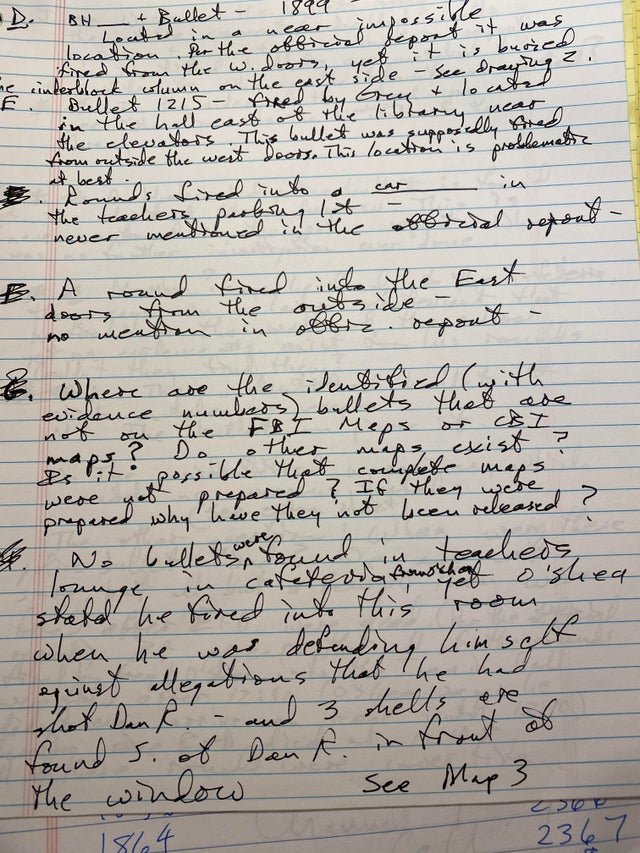 D. BH ___ + Bullet - 1899
Located in a near impossible
location. Per the official report it was
fired from the W. doors, yet it is buried
cinderblock column on the east side - see drawing 2.
E. Bullet 1215 - fired by Grey + located
in the hall east of the library near
the elevators. This bullet was supposedly fired
from outside the west doors. This location is problematic
at best.
Rounds fired into a car ______ in
the teachers parking lot -
never mentioned in the official report -
A round fired into the East
doors from the outside -
no mention in offic. report -
Where are the identified (with
evidence numbers) bullets that are
not on the FBI Maps or CBI
maps? Do other maps exist?
Is it possible that complete maps
were not prepared? If they were
prepared why have they not been released?
No bullets were found in teachers
lounge in cafeteria, yet O'shea
statd he fired into this room
when he was defending himself
against allegations that he had
shot Dan R. - and 3 shells are
found S. of Dan R. in front of
the window See Map 3
1864
2367